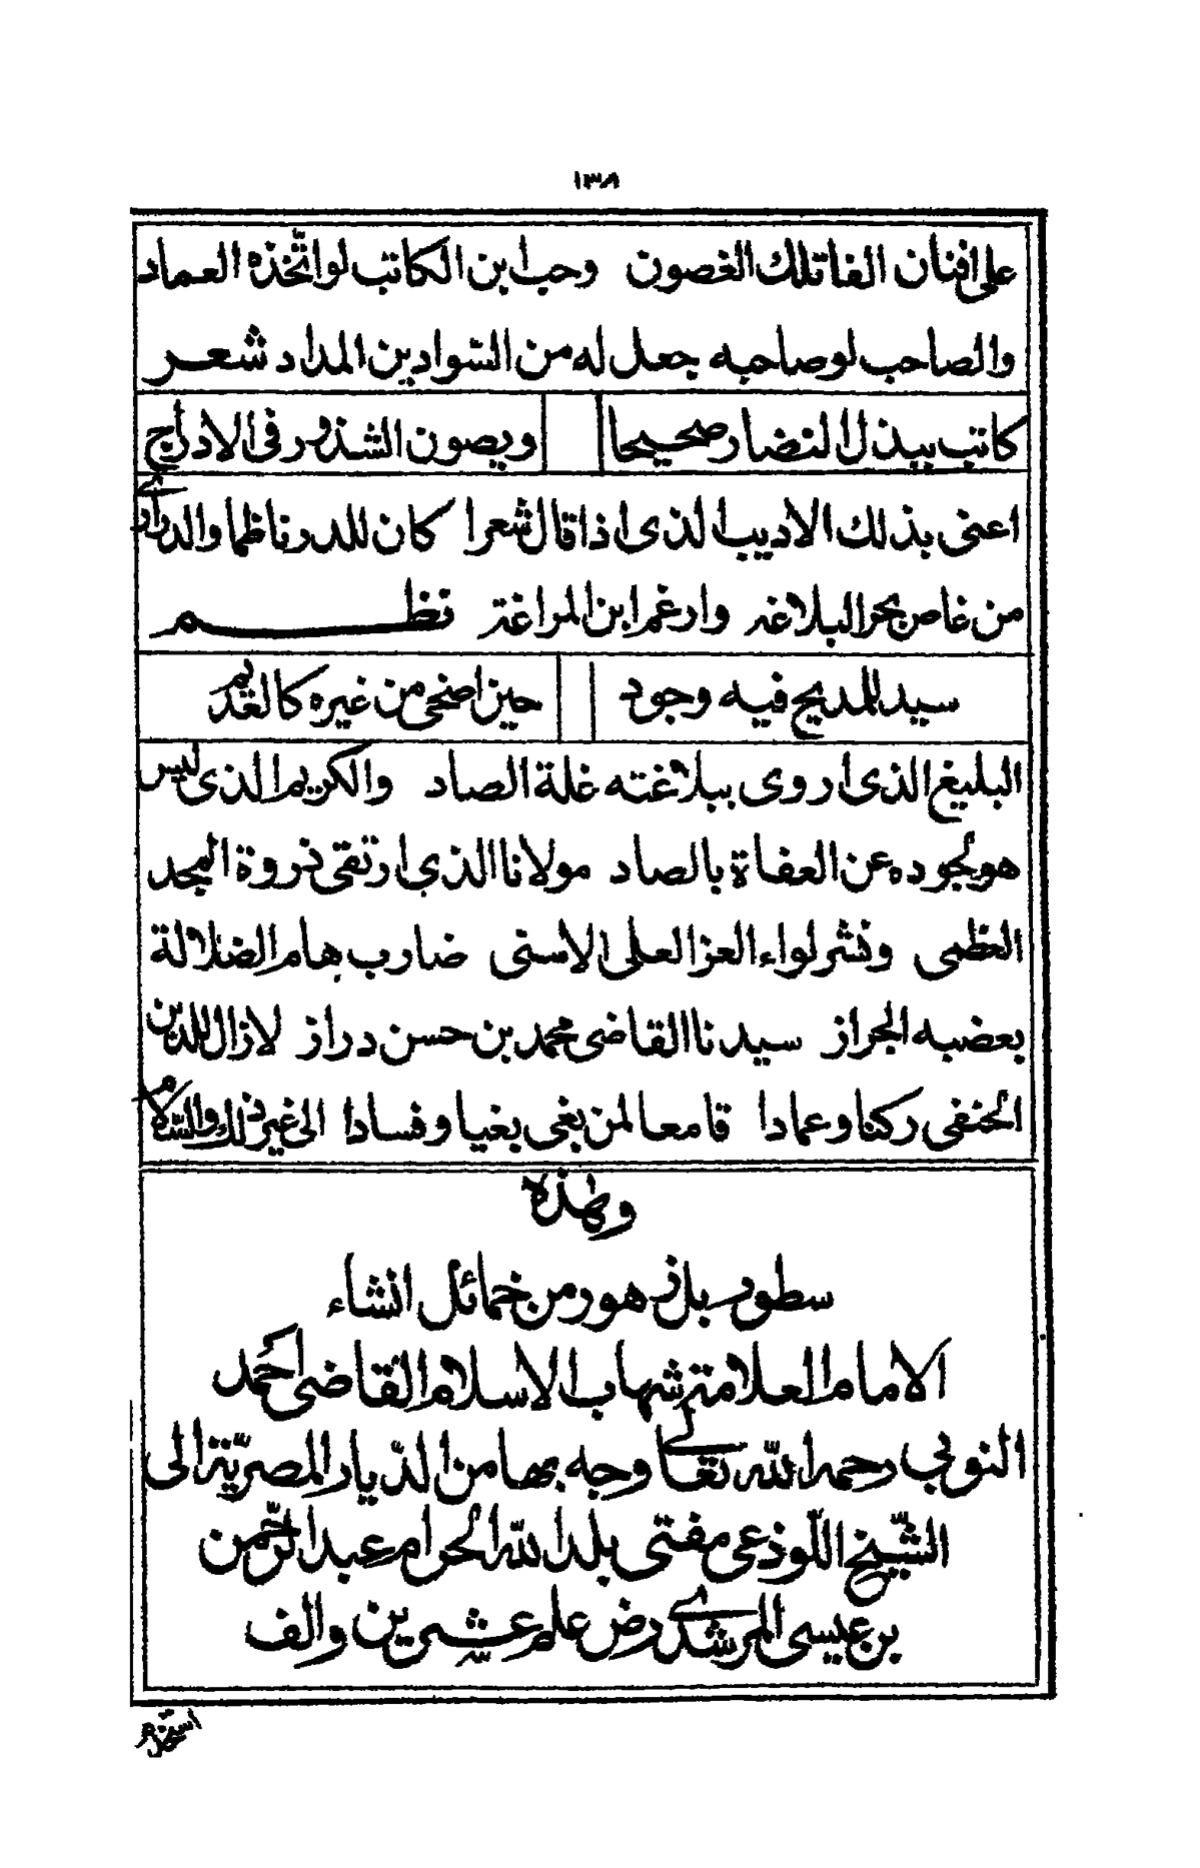 ١٣٨
على افنان الفاتلك الغصون وحب ابن الكاتب لو اتّخذه العماد
والصاحب لو صاحبه جعل له من السّوادين المداد شعر
كاتب يبذل النضار صحيحا ويصون الشذور فى الادراج
اعنى بذلك الاديب الذى اذا قال شعرا كان للدر ناظما والدرارى
من غاص بحر البلاغة وارغم ابن المراغة نظم
سيد للمديح فيه وجود حين اضحى من غيره كالعديم
البليغ الذى اروى ببلاغته غلة الصاد والكريم الذى ليس
هو لجوده عن العفاة بالصاد مولانا الذى ارتقى ذروة المجد
العظمى ونشر لواء العز العلى الاسنى ضارب هام الضلالة
بعضبه الجراز سيدنا القاضى محمد بن حسن دراز لازال للدين
الحنفى ركنا وعمادا قامعا لمن بغى بغيا وفسادا الى غير ذلك والسّلام
وهٰذه
سطور بل زهور من خمائل انشاء
الامام العلامة شهاب الاسلام القاضى احمد
النوبي رحمه الله تعالى وجه بها من الدّيار المصريّة الى
الشّيخ اللّوذعى مفتى بلد الله الحرام عبد الرّحمن
بن عيسى المرشدى رض علم عشرين والف